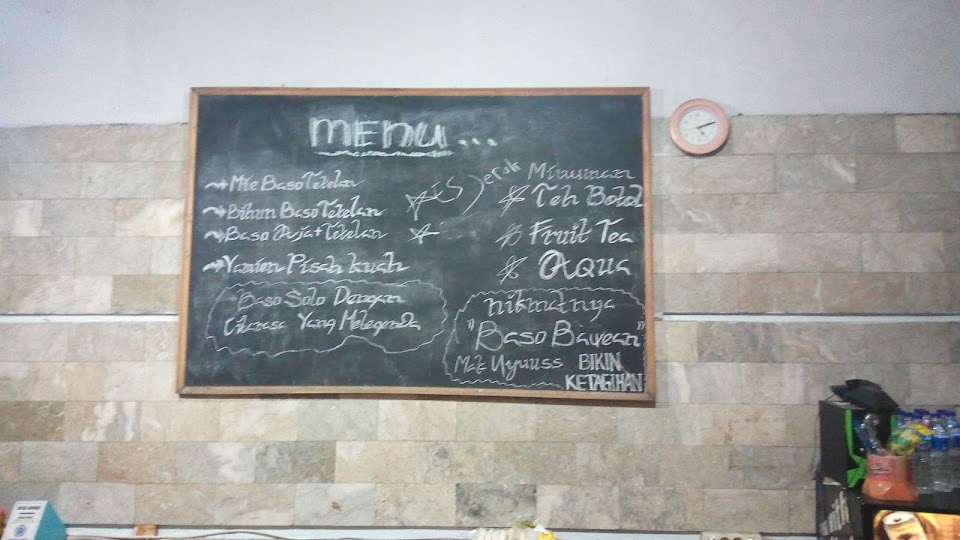 MENU...
Mie Baso Tetelan
Bihun Baso Tetelan
Baso Aja + Tetelan
Yamien Pisah kuah
"Baso Solo Dengan
Citarasa Yang Melegenda
ES Jeruk
Minuman
Teh Botol
Fruit Tea
Aqua
nikmatnya
"Baso Bawean"
BIKIN
KETAGIHAN